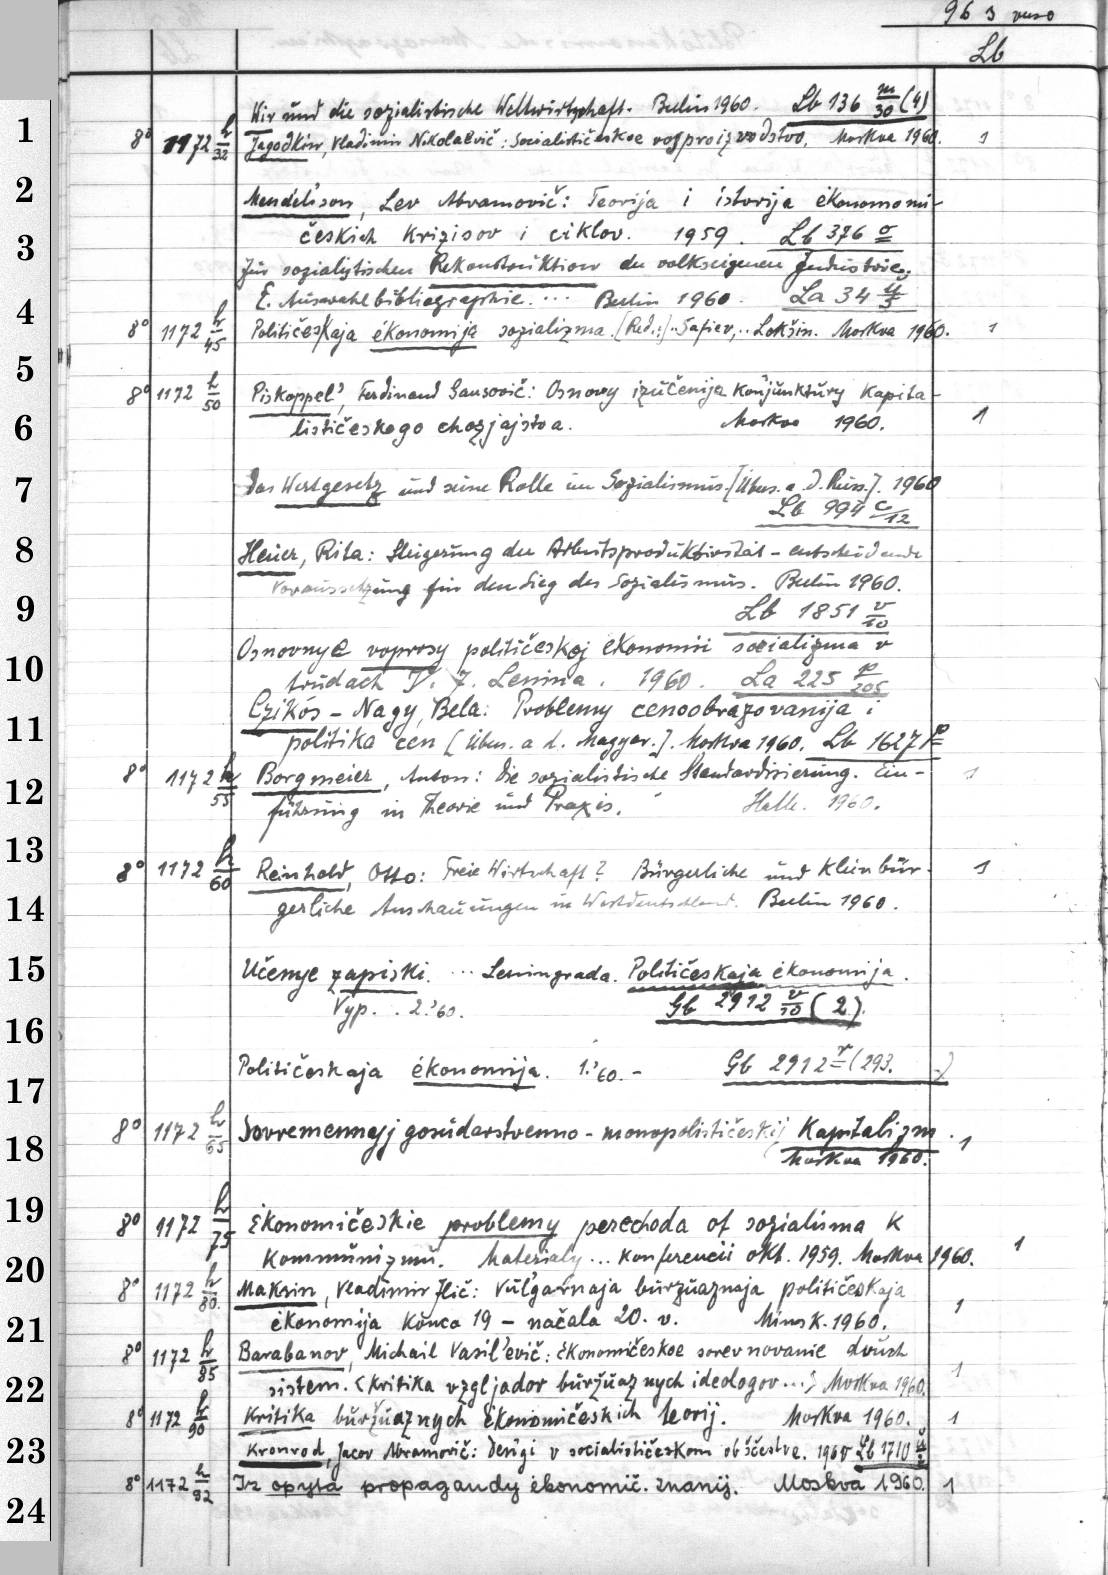 96 3 verso
Lb
Wir und die sozialistische Weltwirtschaft. Berlin 1960. Lb 136 m/30 (4)
1 8° 1172 h/32 Jagodkin, Vladimir Nikolaevič: Socialističeskoe vosproizvodstvo. Moskva 1960. 1
2 Mendel'son, Lev Abramovič: Teorija i istorija ėkonomomi-
3 českich krizisov i ciklov. 1959. Lb 376 o
Zur sozialistischen Rekonstruktion der volkseigenen Industrie.
E. Auswahlbibliographie. ... Berlin 1960. La 34
4 8° 1172 h/45 Političeskaja ėkonomija sozializma. [Red.:] .. Safiev, .. Lokšin. Moskva 1960. 1
5
8° 1172 h/50 Piskoppel', Ferdinand Gansovič: Osnovy izučenija konjunktury kapita-
6 lističeskogo chozjajstva. Moskva 1960. 1
7 Das Wertgesetz und seine Rolle im Sozialismus. [Übers. a. d. Russ.]. 1960
Lb 994 c/12
8 Heuer, Rita: Steigerung der Arbeitsproduktivität - entscheidende
Voraussetzung für den Sieg des Sozialismus. Berlin 1960.
9 Lb 1851 v/10
10 Osnovnye voprosy političeskoj ėkonomii sozializma v
trudach V. I. Lenina. 1960. La 225 p/205
Czikós-Nagy, Bela: Problemy cenoobrazovanija i
11 politika cen [Übers. a d. Magyar.]. Moskva 1960. Lb 1627 p
8° 1172 h/55 Borgmeier, Anton: Die sozialistische Standardisierung. Ein- 1
12 führung in Theorie und Praxis. Halle. 1960.
13
8° 1172 h/60 Reinhold, Otto: Freie Wirtschaft? Bürgerliche und kleinbür- 1
14 gerliche Anschauungen in Westdeutschland. Berlin 1960.
15 Učenye zapiski. ... Leningrada. Političeskaja ėkonomija.
Vyp. .. 2.'60. Gb 2912 v/10 (2.).
16
Političeskaja ėkonomija. 1.'60. - Gb 2912 r (293. )
17
8° 1172 h/65 Sovremennyj gosudarstvenno-monopolističeskij Kapitalizm. 1
18 Moskva 1960.
19 8° 1172 h/75 Ėkonomičeskie problemy perechoda ot sozialisma k
20 kommunizmu. Materialy ... konferencii okt. 1959. Moskva 1960. 1
8° 1172 h/80. Maksin, Vladimir Ilič: Vul'garnaja buržuaznaja političeskaja
21 ėkonomija konca 19 - načala 20. v. Minsk. 1960. 1
8° 1172 h/85 Barabanov, Michail Vasil'evič: Ėkonomičeskoe sorevnovanie dvuch
22 sistem. <Kritika vzgljadov buržuaznych ideologov ...> Moskva 1960. 1
8° 1172 h/90 Kritika buržuaznych ėkonomičeskich teorij. Moskva 1960. 1
23 Kronrod, Jacov Abramovič: Den'gi v socialističeskom obščestve. 1960 Lb 1710
8° 1172 h/92 Iz opyta propagandy ėkonomič. znanij. Moskva 1960. 1
24